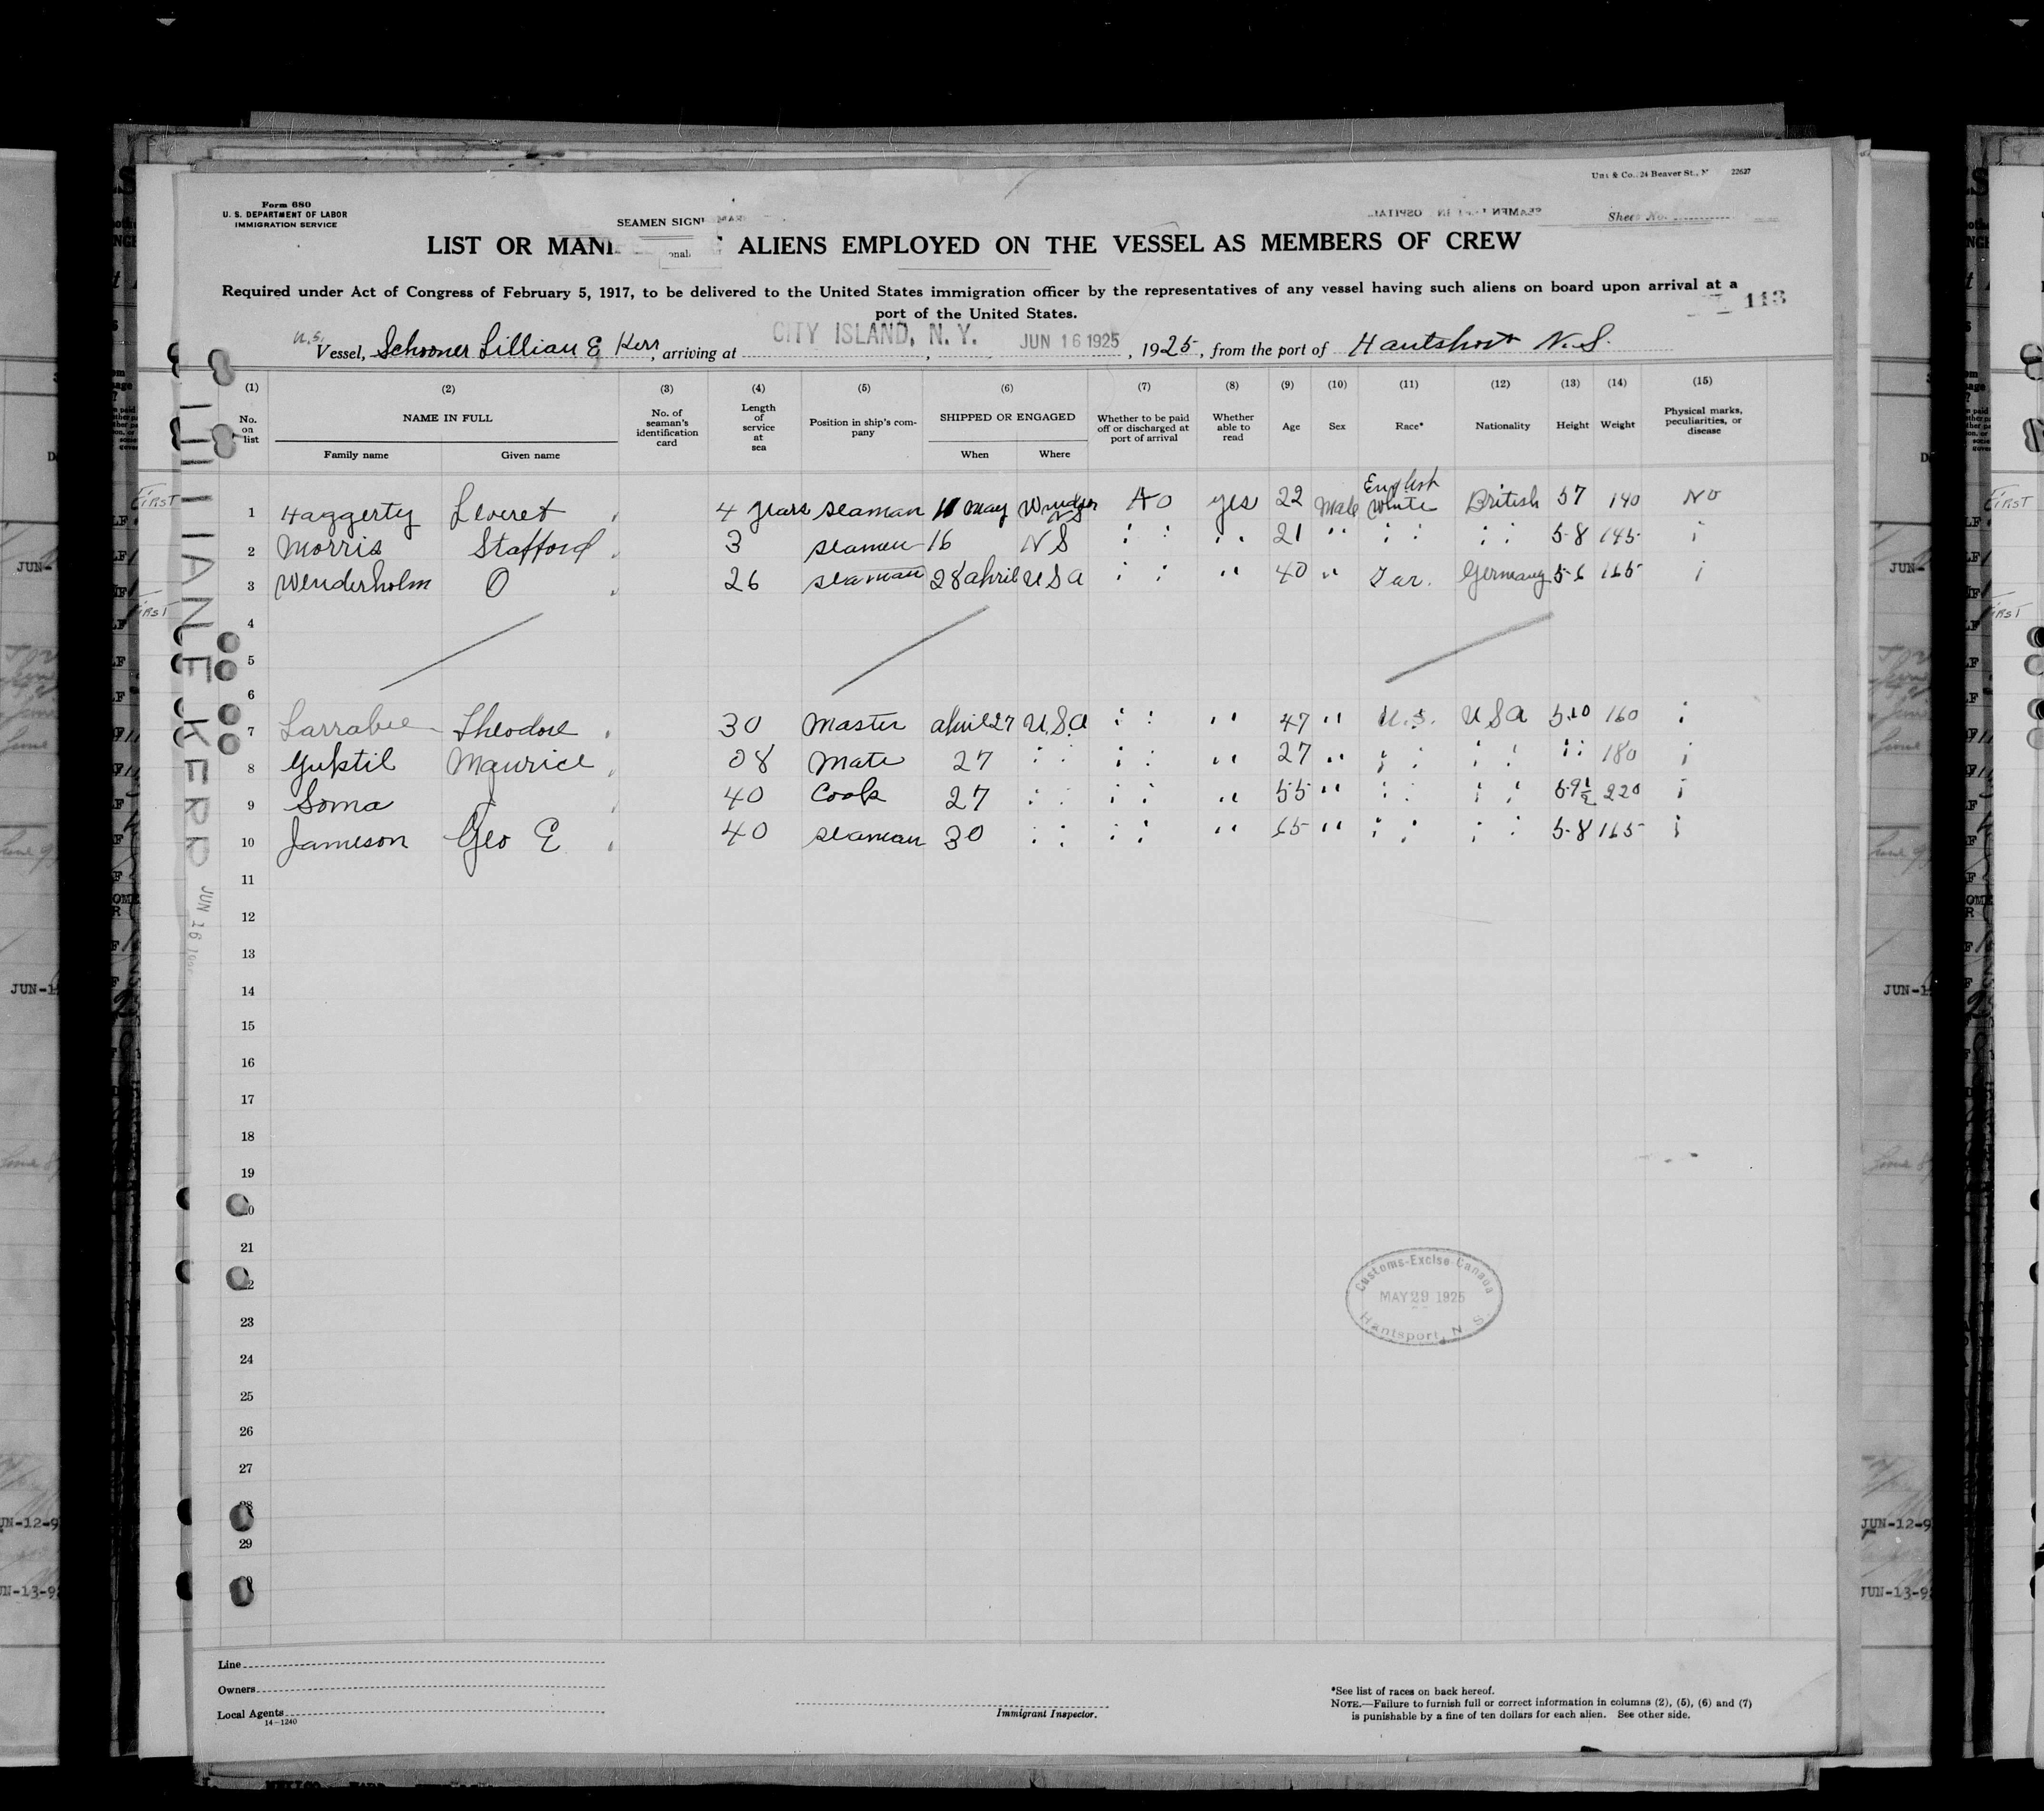 22627
Form 680
U. S. DEPARTMENT OF LABOR
IMMIGRATION SERVICE
SEAMEN SIGN
LIST OR MANI ALIENS EMPLOYED ON THE VESSEL AS MEMBERS OF CREW
Required under Act of Congress of February 5, 1917, to be delivered to the United States immigration officer by the representatives of any vessel having such aliens on board upon arrival at a
port of the United States.
113
U.S. Vessel, Schooner Lillian E Kerr, arriving at CITY ISLAND, N. Y. , JUN 16 1925 , 1925, from the port of Hantsport N.S.
(1) (2) (3) (4) (5) (6) (7) (8) (9) (10) (11) (12) (13) (14) (15)
No. on list NAME IN FULL No. of seaman's identification card Length of service at sea Position in ship's company SHIPPED OR ENGAGED Whether to be paid off or discharged at port of arrival Whether able to read Age Sex Race* Nationality Height Weight Physical marks, peculiarities, or disease
Family name Given name When Where
First
1 Haggerty Leveret 4 years seaman 11 May Windsor NS No yes 22 Male English White British 57 140 No
2 Morris Stafford 3 seaman 16 NS " " 21 " " " 5-8 145
3 Wenderholm O 26 seaman 28 april USA " " 40 " Germany 5-6 165
First
4
5
6
7 Larrabee Theodore 30 Master april 27 U.S.A " " 47 " U.S. USA 5-10 160
8 Guptil Maurice 08 Mate 27 " " " 27 " " " " 180
9 Soma 40 Cook 27 " " " 55 " " " 5-9½ 220
10 Jameson Geo E 40 seaman 30 " " " 65 " " " 5-8 165
11
12
13
14
15
16
17
18
19
20
21
22
23
24
25
26
27
28
29
30
LILLIAN E KERR
JUN 16
Customs-Excise Canada
MAY 29 1925
Hantsport, N. S.
Line
Owners
Local Agents
14-1240
Immigrant Inspector.
*See list of races on back hereof.
NOTE.—Failure to furnish full or correct information in columns (2), (5), (6) and (7)
is punishable by a fine of ten dollars for each alien. See other side.
JUN-12-9
JUN-13-9